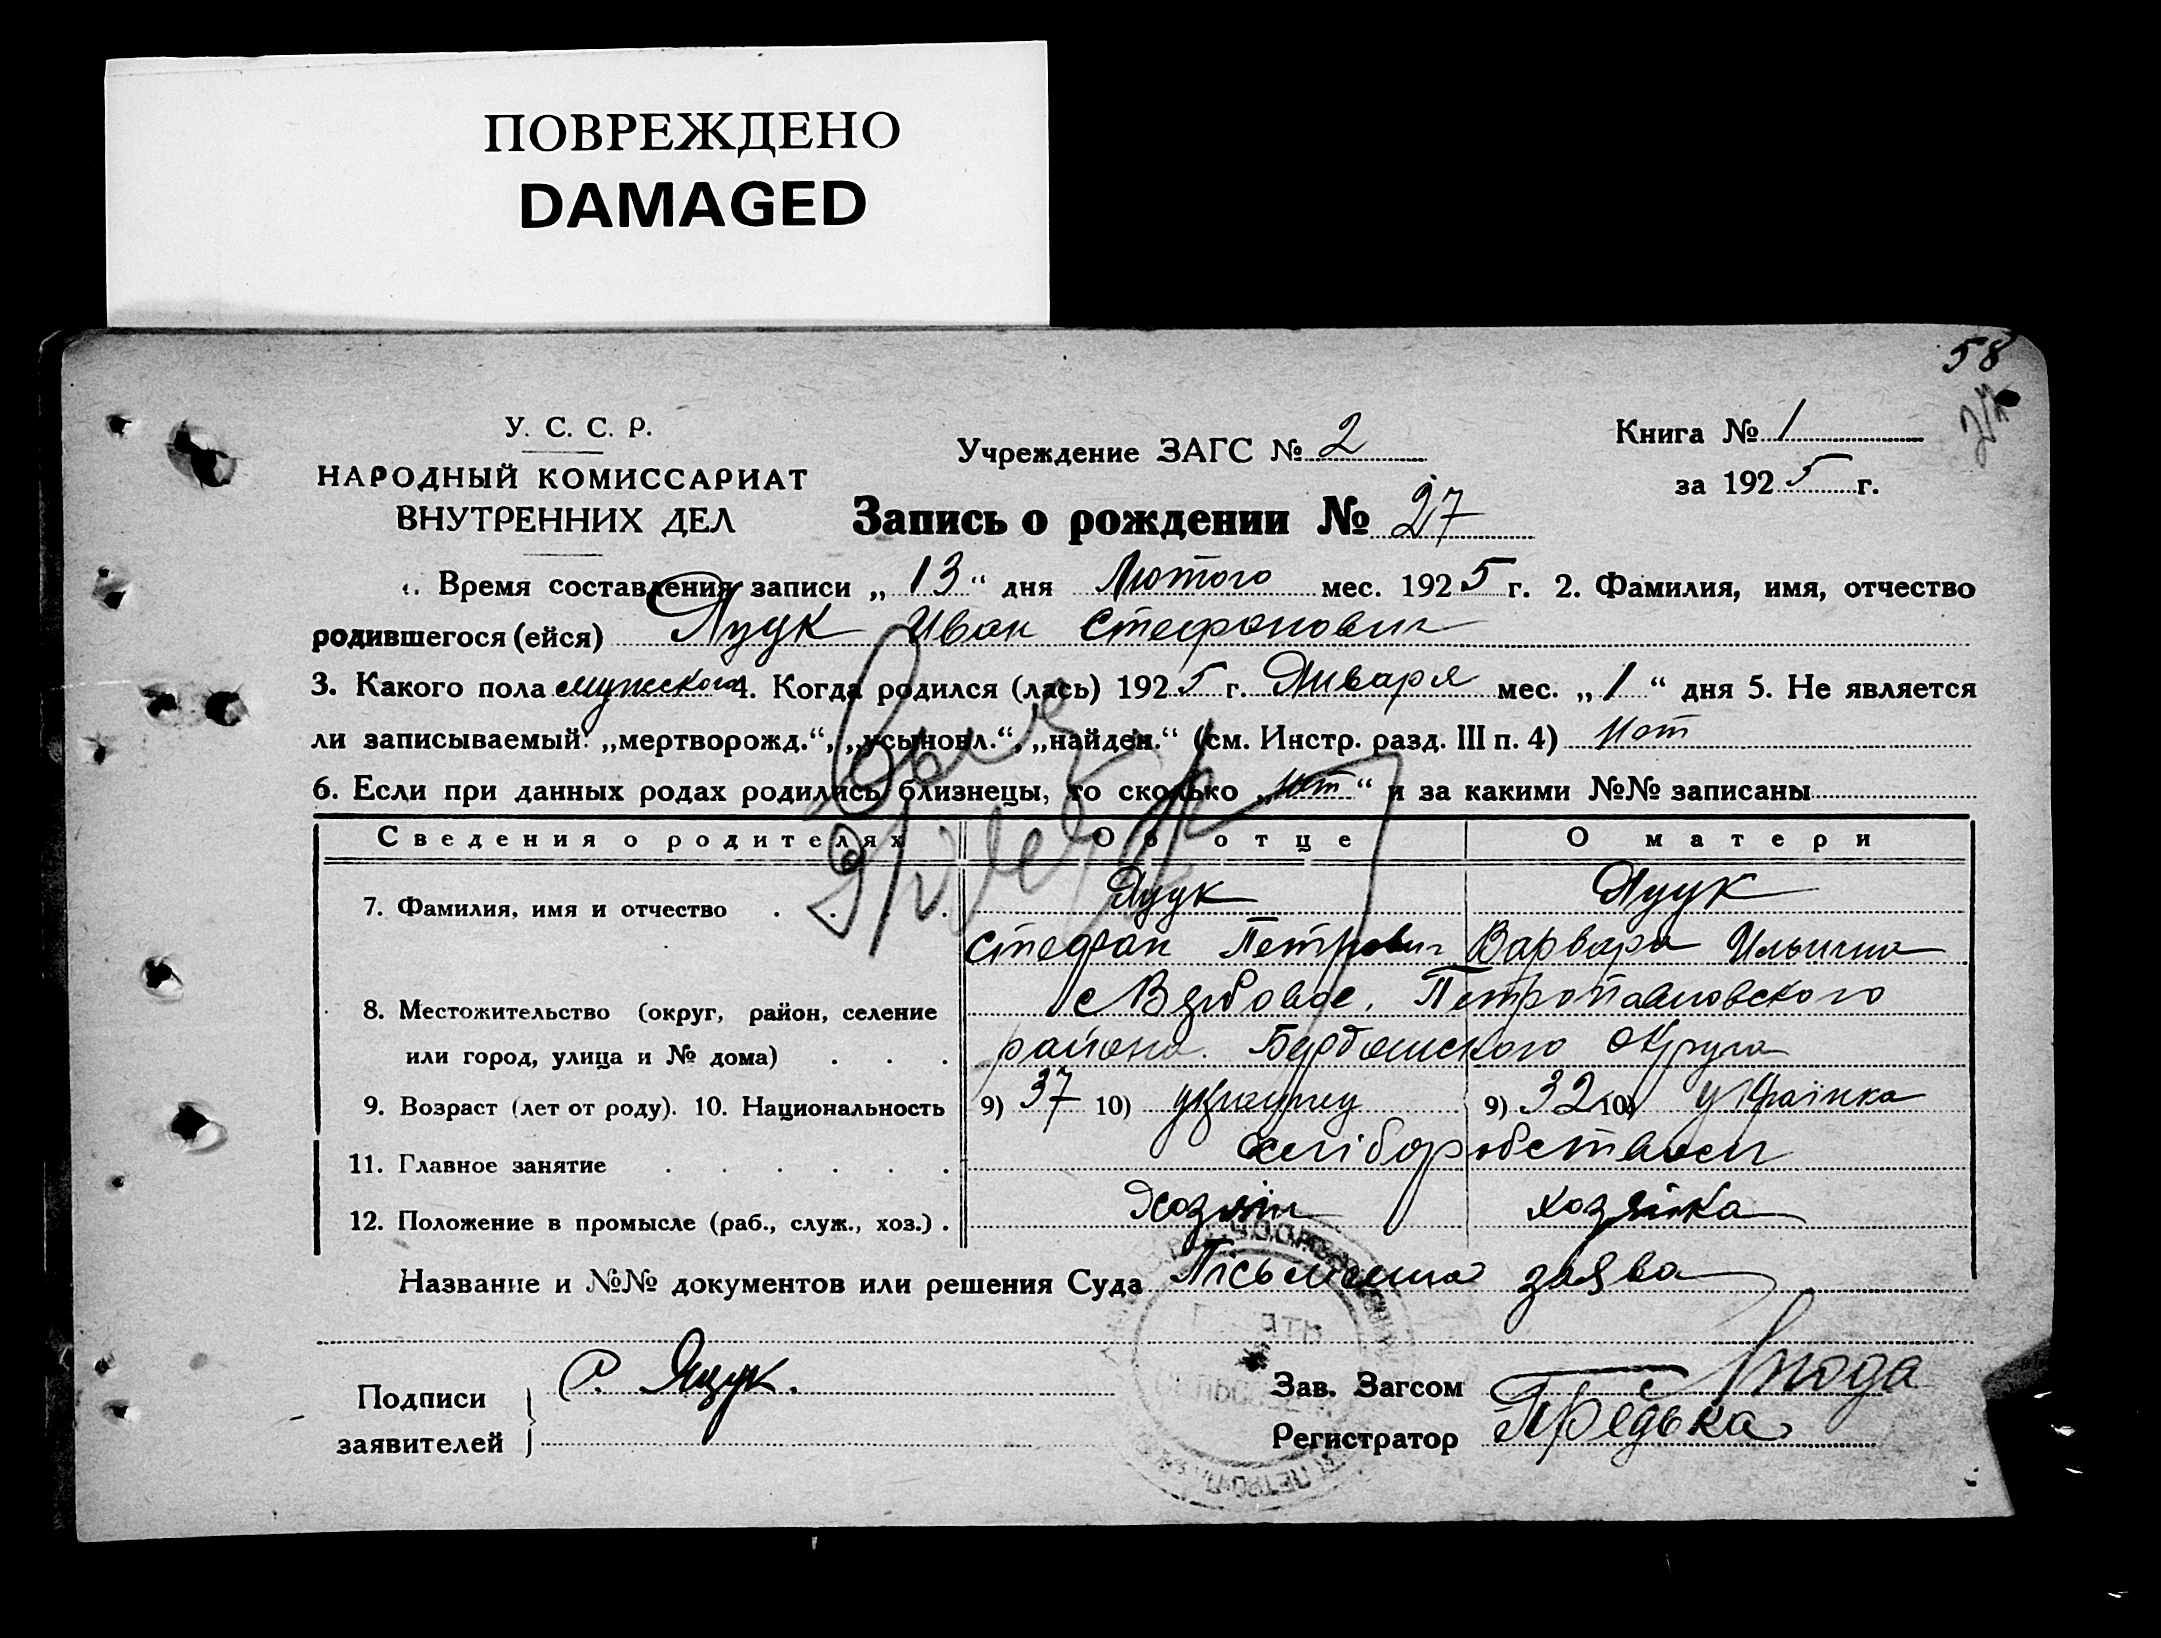 ПОВРЕЖДЕНО
DAMAGED
58
У. С. С. Р.
НАРОДНЫЙ КОМИССАРИАТ
ВНУТРЕННИХ ДЕЛ
Учреждение ЗАГС № 2
Книга № 1
за 1925 г.
Запись о рождении № 27
1. Время составления записи „13“ дня Лютого мес. 1925 г. 2. Фамилия, имя, отчество
родившегося (ейся) Яцук Иван Стефанович
3. Какого пола мужского 4. Когда родился (лась) 1925 г. Января мес. „1“ дня 5. Не является
ли записываемый: „мертворожд.“, „усыновл.“, „найден.“ (см. Инстр. разд. III п. 4) нет
6. Если при данных родах родились близнецы, то сколько „нет“ и за какими №№ записаны
Сведения о родителях Об отце О матери
7. Фамилия, имя и отчество Яцук Яцук
Стефан Петрович Варвара Ильична
8. Местожительство (округ, район, селение с Вербовое, Петропавловского
или город, улица и № дома) района. Бердянского Округа
9. Возраст (лет от роду). 10. Национальность 9) 37 10) українец 9) 32 10) українка
11. Главное занятие хліборобством
12. Положение в промысле (раб., служ., хоз.) хозяін хозяйка
Название и №№ документов или решения Суда Пісьменна заява
Подписи
заявителей
С. Яцук.
Зав. Загсом
Регистратор